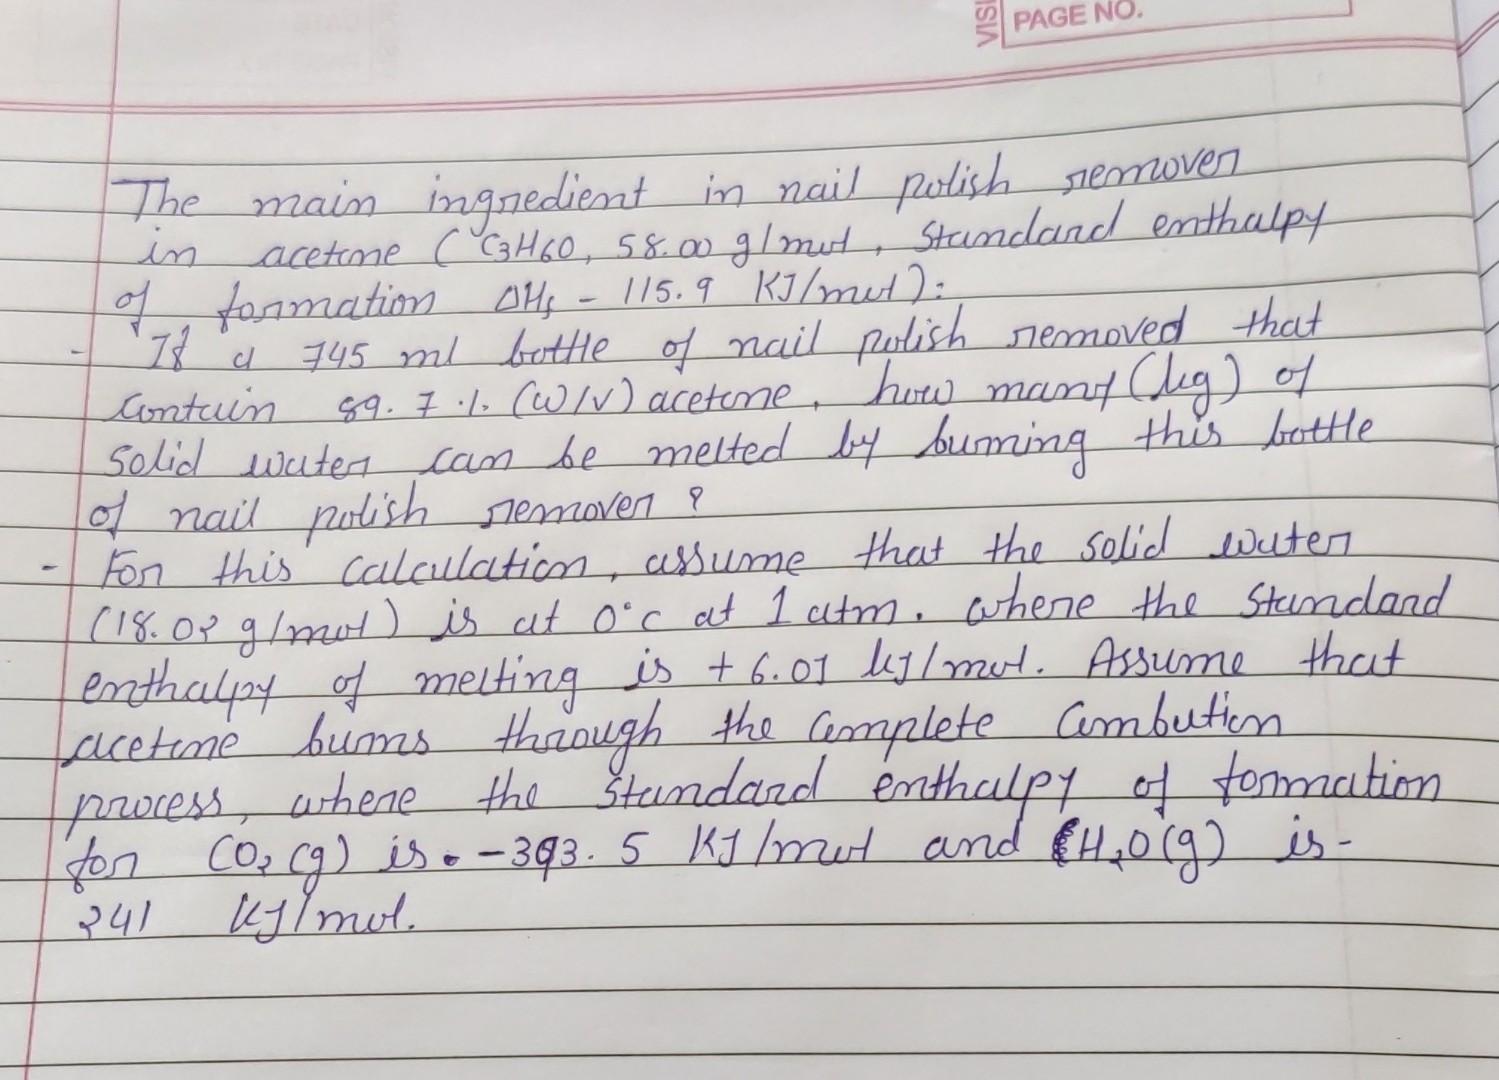 VISI
PAGE NO.
The main ingredient in nail polish remover
in acetone (C3H6O, 58.00 g/mol, Standard enthalpy
of formation ΔHf - 115.9 KJ/mol):
- If a 745 ml bottle of nail polish removed that
Contain 89.7 % (W/V) acetone, how many (kg) of
solid water can be melted by burning this bottle
of nail polish remover ?
- For this calculation, assume that the solid water
(18.02 g/mol) is at 0°c at 1 atm. where the standard
enthalpy of melting is + 6.01 kJ/mol. Assume that
acetone burns through the Complete Combution
process, where the standard enthalpy of formation
for CO2 (g) is -393.5 KJ/mol and H2O(g) is -
241 KJ/mol.